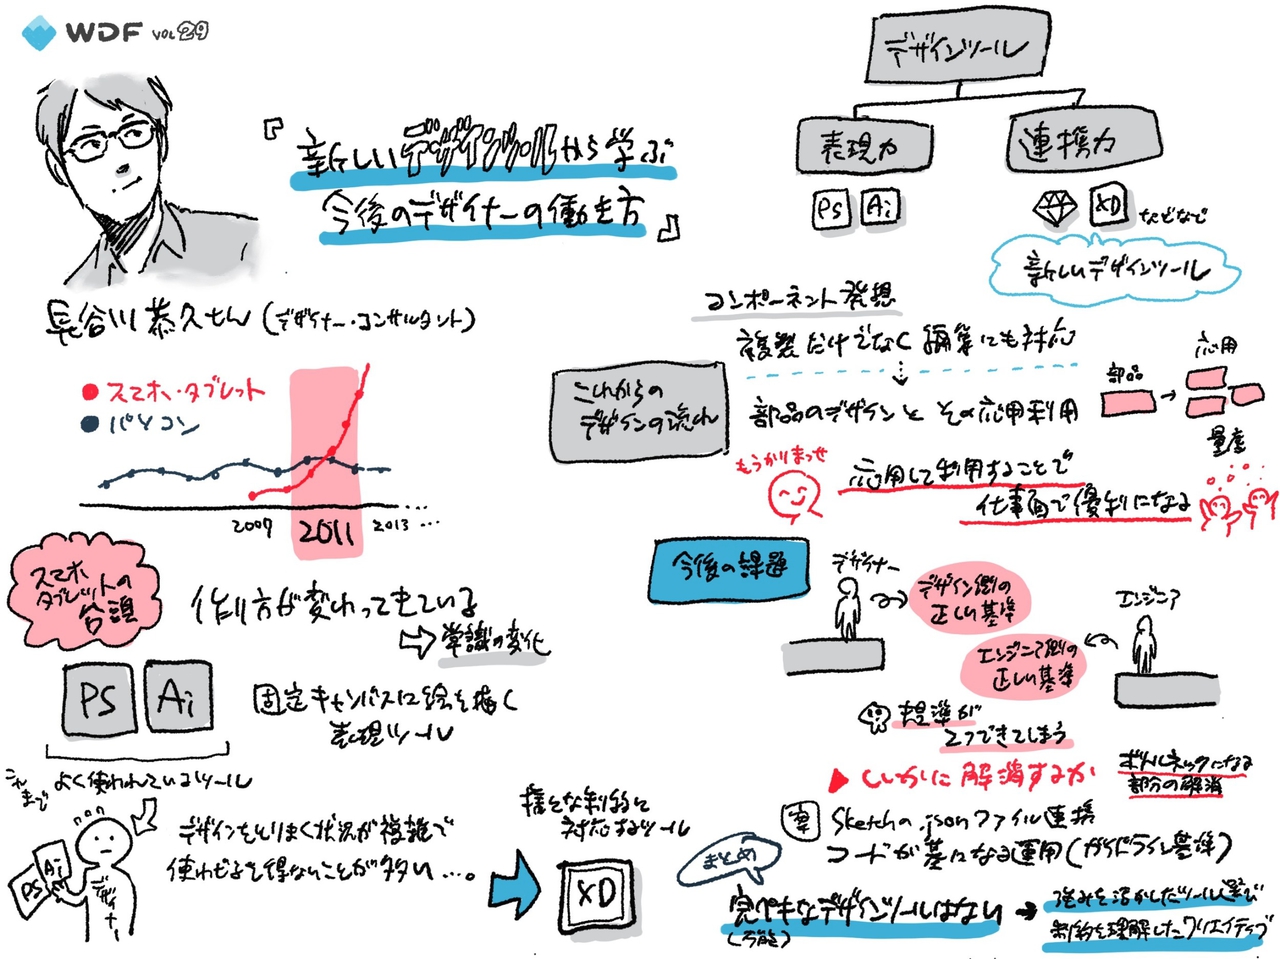 WDF VOL 29
『新しいデザインツールから学ぶ
今後のデザイナーの働き方』
長谷川恭久さん(デザイナー・コンサルタント)
スマホ・タブレット
パソコン
2007
2011
2013 ...
スマホ
タブレットの
台頭
作り方が変わってきている
⇨常識の変化
PS
Ai
固定キャンバスに絵を描く
表現ツール
よく使われているツール
これまで
デザインをとりまく状況が複雑で
使わざるを得ないことが多い…。
PS
Ai
デザイナー
様々な制約に
対応するツール
XD
デザインツール
表現力
連携力
PS
Ai
XD
などなど
新しいデザインツール
これからの
デザインの流れ
コンポーネント発想
複製だけでなく編集にも対応
部品のデザインとその応用利用
部品
→
応用
量産
もうかりまっせ
応用して利用することで
仕事面で優利になる
今後の課題
デザイナー
デザイン側の
正しい基準
エンジニア
エンジニア側の
正しい基準
基準が
2つできてしまう
▶いかに解消するか
ボトルネックになる
部分の解消
案
Sketchの.jsonファイル連携
コードが基になる運用(ガイドライン基準)
まとめ
完ペキなデザインツールはない
(万能)
→
強みを活かしたツール選びで
制約を理解したクリエイティブ